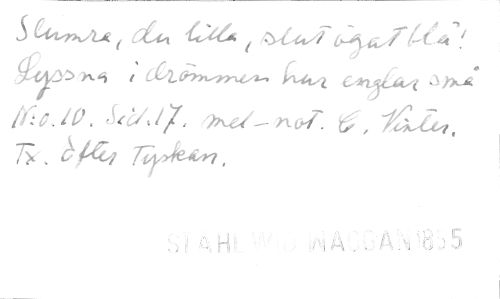 Slumra, du lilla, slut ögat blå!
Lyssna i drömmen hur englar små
N:o. 10. Sid. 17. mel-not. C. Vinter.
Tx. öfter Tyskan.
STAHL VID WAGGAN 1855